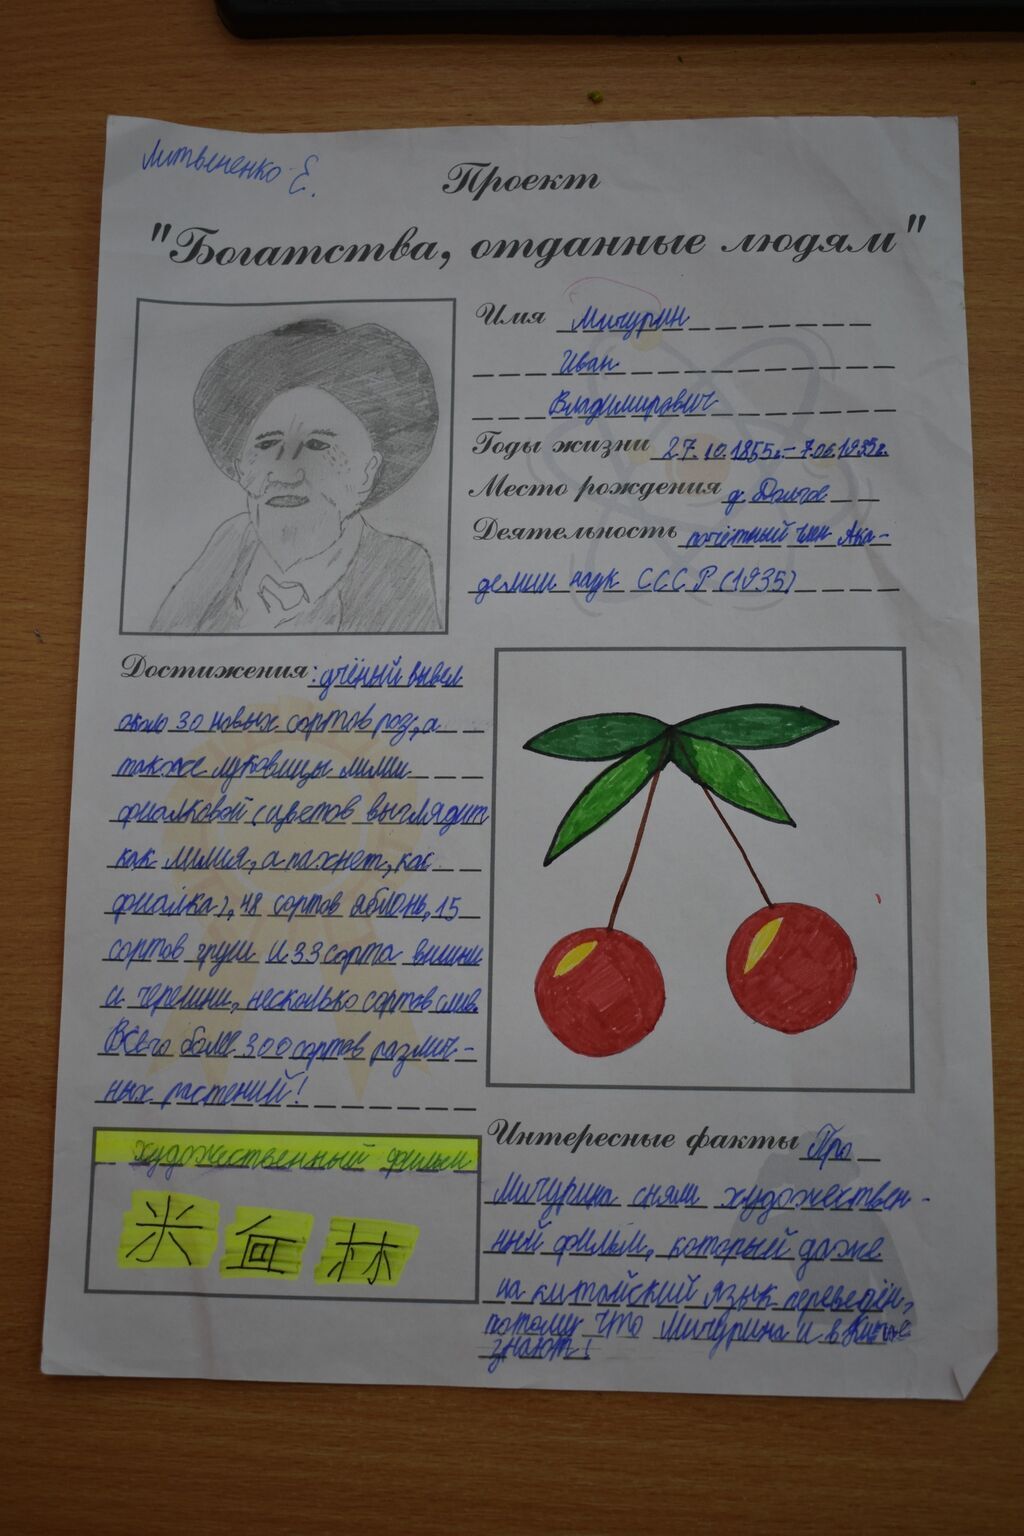 Литвененко Е.
Проект
"Богатства, отданные людям"
Имя Мичурин
Иван
Владимирович
Годы жизни 27.10.1855г.–7.06.1935г.
Место рождения д. Долгое
Деятельность почётный член Ака-
демии наук СССР (1935)
Достижения: учёный вывел
около 30 новых сортов роз, а
также луковицы лилии
фиалковой (цветов выглядит
как лилия, а пахнет, как
фиалка), 48 сортов яблонь, 15
сортов груш и 33 сорта вишни
и черешни, несколько сортов слив.
Всего более 300 сортов различ-
ных растений!
художественный фильм
米 丘 林
Интересные факты Про
Мичурина сняли художествен-
ный фильм, который даже
на китайский язык переведён,
потому что Мичурина и в Китае
знают!